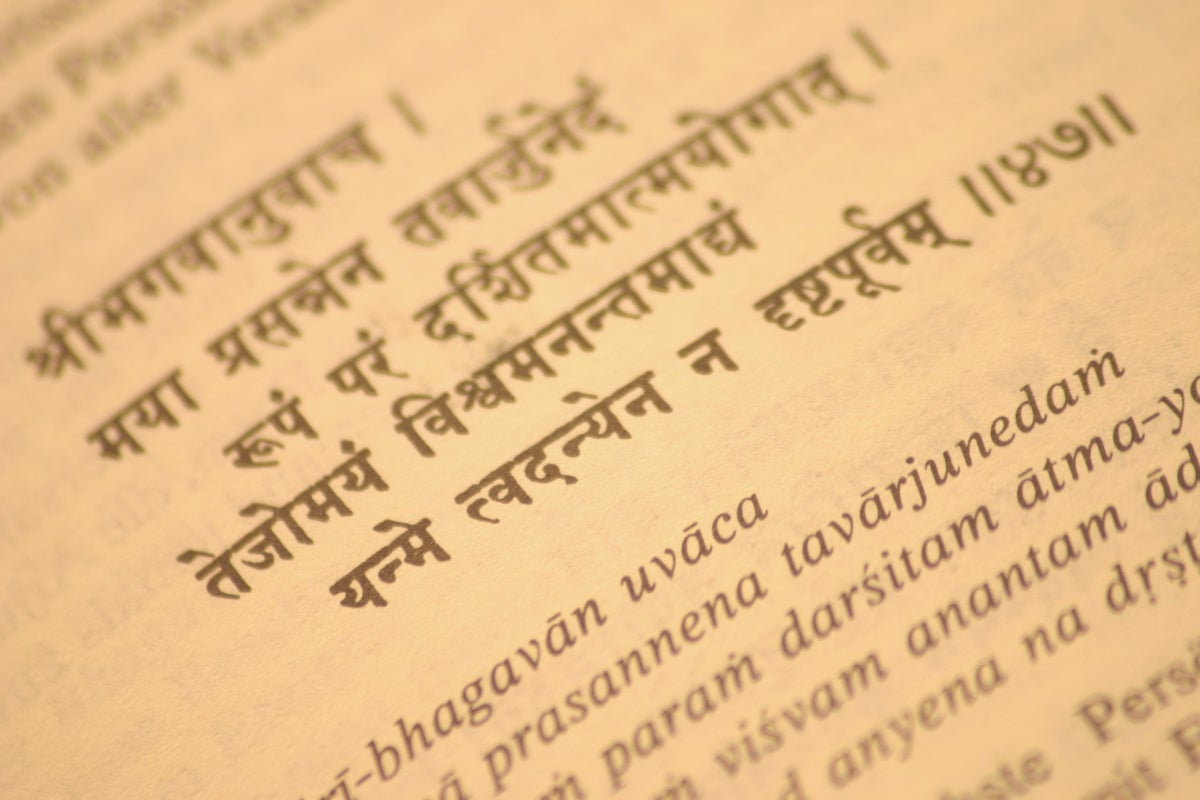 aller
श्रीभगवानुवाच ।
मया प्रसन्नेन तवार्जुनेदं
रूपं परं दर्शितमात्मयोगात् ।
तेजोमयं विश्वमनन्तमाद्यं
यन्मे त्वदन्येन न दृष्टपूर्वम् ॥४७॥
rī-bhagavān uvāca
ā prasannena tavārjunedaṁ
ṁ paraṁ darśitam ātma-yo
ṁ viśvam anantam ād
d anyena na dṛṣṭ
ste Persö
mit